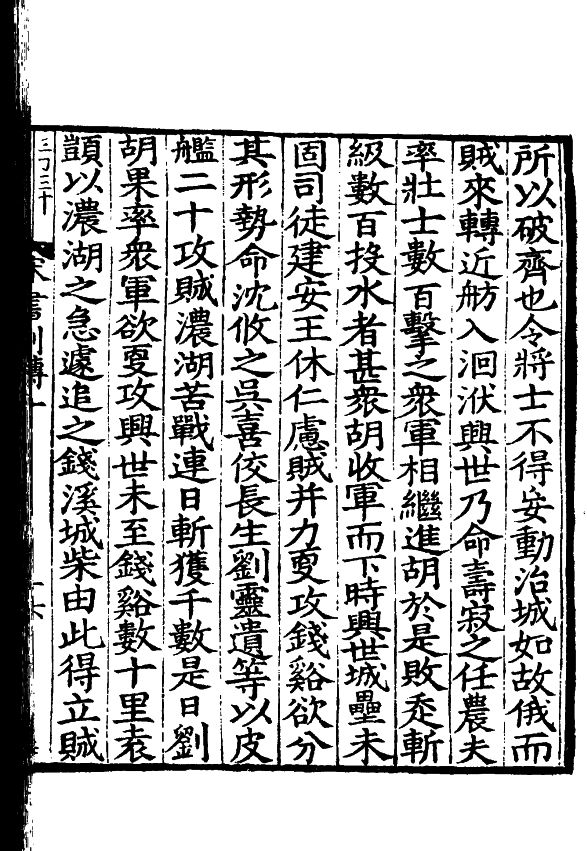 所以破齊也令將士不得妄動治城如故俄而
賊來轉近舫入洄洑興世乃命壽寂之任農夫
率壯士數百擊之衆軍相繼進胡於是敗走斬
級數百投水者甚衆胡收軍而下時興世城壘未
固司徒建安王休仁慮賊并力更攻錢谿欲分
其形勢命沈攸之吳喜佼長生劉靈遺等以皮
艦二十攻賊濃湖苦戰連日斬獲千數是日劉
胡果率衆軍欲更攻興世未至錢谿數十里袁
顗以濃湖之急遽追之錢溪城柴由此得立賊